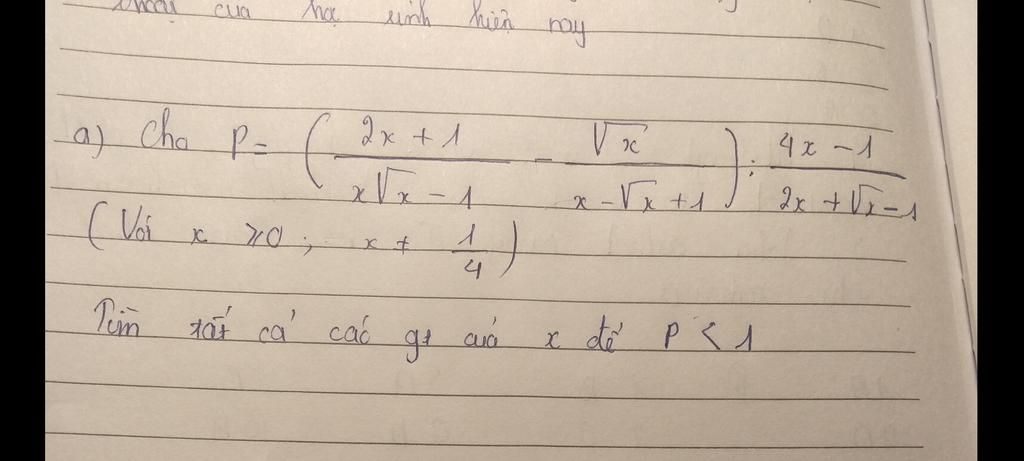 của học sinh hiện nay
a) Cho P = ( (2x + 1)/(x√x - 1) - √x/(x - √x + 1) ) : (4x - 1)/(2x + √x - 1)
(Với x ⩾ 0 ; x ≠ 1/4)
Tìm tất cả các gt của x để P < 1